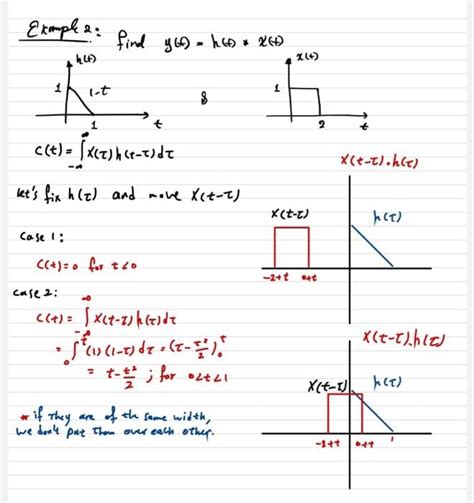 Example 2: find y(t) = h(t) * x(t)
h(t)
1
1-t
1
t
&
x(t)
1
2
t
c(t) = ∫_{-∞}^{∞} x(τ) h(t-τ) dτ
let's fix h(τ) and move x(t-τ)
x(t-τ).h(τ)
x(t-τ)
h(τ)
-2+t
0+t
Case 1:
c(t)=0 for t<0
case 2:
c(t) = ∫ x(t-τ) h(τ) dτ
= ∫_0^t (1) (1-τ) dτ = (τ - τ²/2)_0^t
= t - t²/2 ; for 0<t<1
x(t-τ).h(τ)
x(t-τ)
h(τ)
-2+t
0+t
1
* if they are of the same width,
we don't put them over each other.